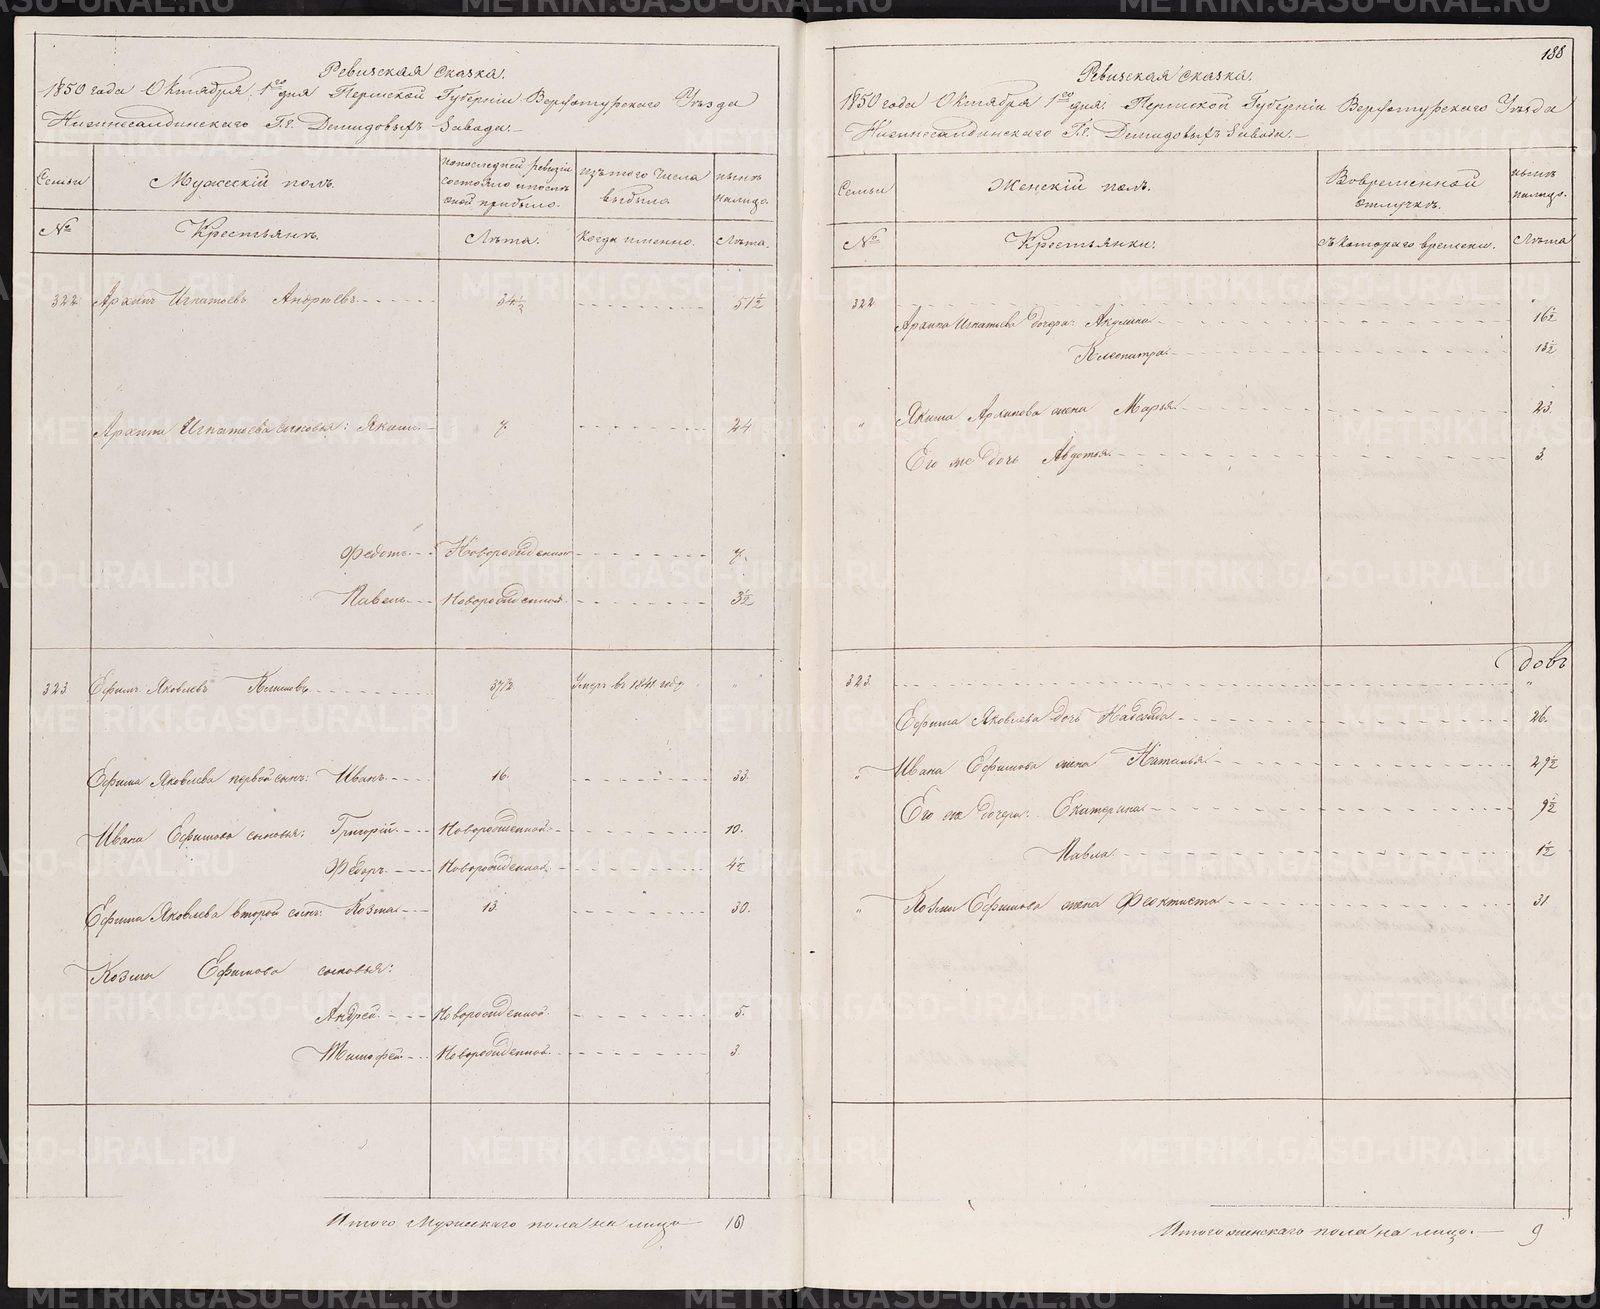 Ревизская сказка.
1850 года Октября 1го дня Пермской Губерніи Верхотурскаго Уѣзда
Нижнесалдинскаго Г.г. Демидовыхъ Завода.
Семьи
Мужескій полъ.
по последней ревизіи состояло и после оной прибыло.
изъ того числа выбыло
нынѣ налицо.
№
Крестьянъ.
Лѣта.
Когда именно.
Лѣта.
322 Архипъ Игнатьевъ Андреевъ 34½ 51½
Архипа Игнатьева сыновья: Якимъ 7. 24
Федотъ Новорожденной 7.
Павелъ Новорожденной 3½
323 Ефимъ Яковлевъ 37½ Умеръ въ 1841 году "
Ефима Яковлева первой сынъ: Иванъ 16. 33.
Ивана Ефимова сыновья: Григорій Новорожденной 10.
Ѳедоръ Новорожденной 4½
Ефима Яковлева второй сынъ: Козма 13. 30.
Козмы Ефимова сыновья:
Андрей Новорожденной 5.
Тимофей Новорожденной 3.
Итого Мужескаго пола на лицо 10
188
Ревизская сказка.
1850 года Октября 1го дня; Пермской Губерніи Верхотурскаго Уѣзда
Нижнесалдинскаго Г.г. Демидовыхъ Завода.
Семьи
Женскій полъ.
Вовременной отлучкѣ.
нынѣ налицо.
№
Крестьянки.
съ котораго времени.
Лѣта
322 "
Архипа Игнатьева дочери: Акулина 16½
Клеопатра 13½
" Якима Архипова жена Марья 23.
Его же дочь Авдотья 3.
вдовъ
323 "
Ефима Яковлева дочь Надежда 26.
" Ивана Ефимова жена Наталья 29½
Его же дочери: Екатерина 9½
Павла 1½
" Козмы Ефимова жена Феоктиста 31
Итого женскаго пола на лицо. 9
METRIKI.GASO-URAL.RU